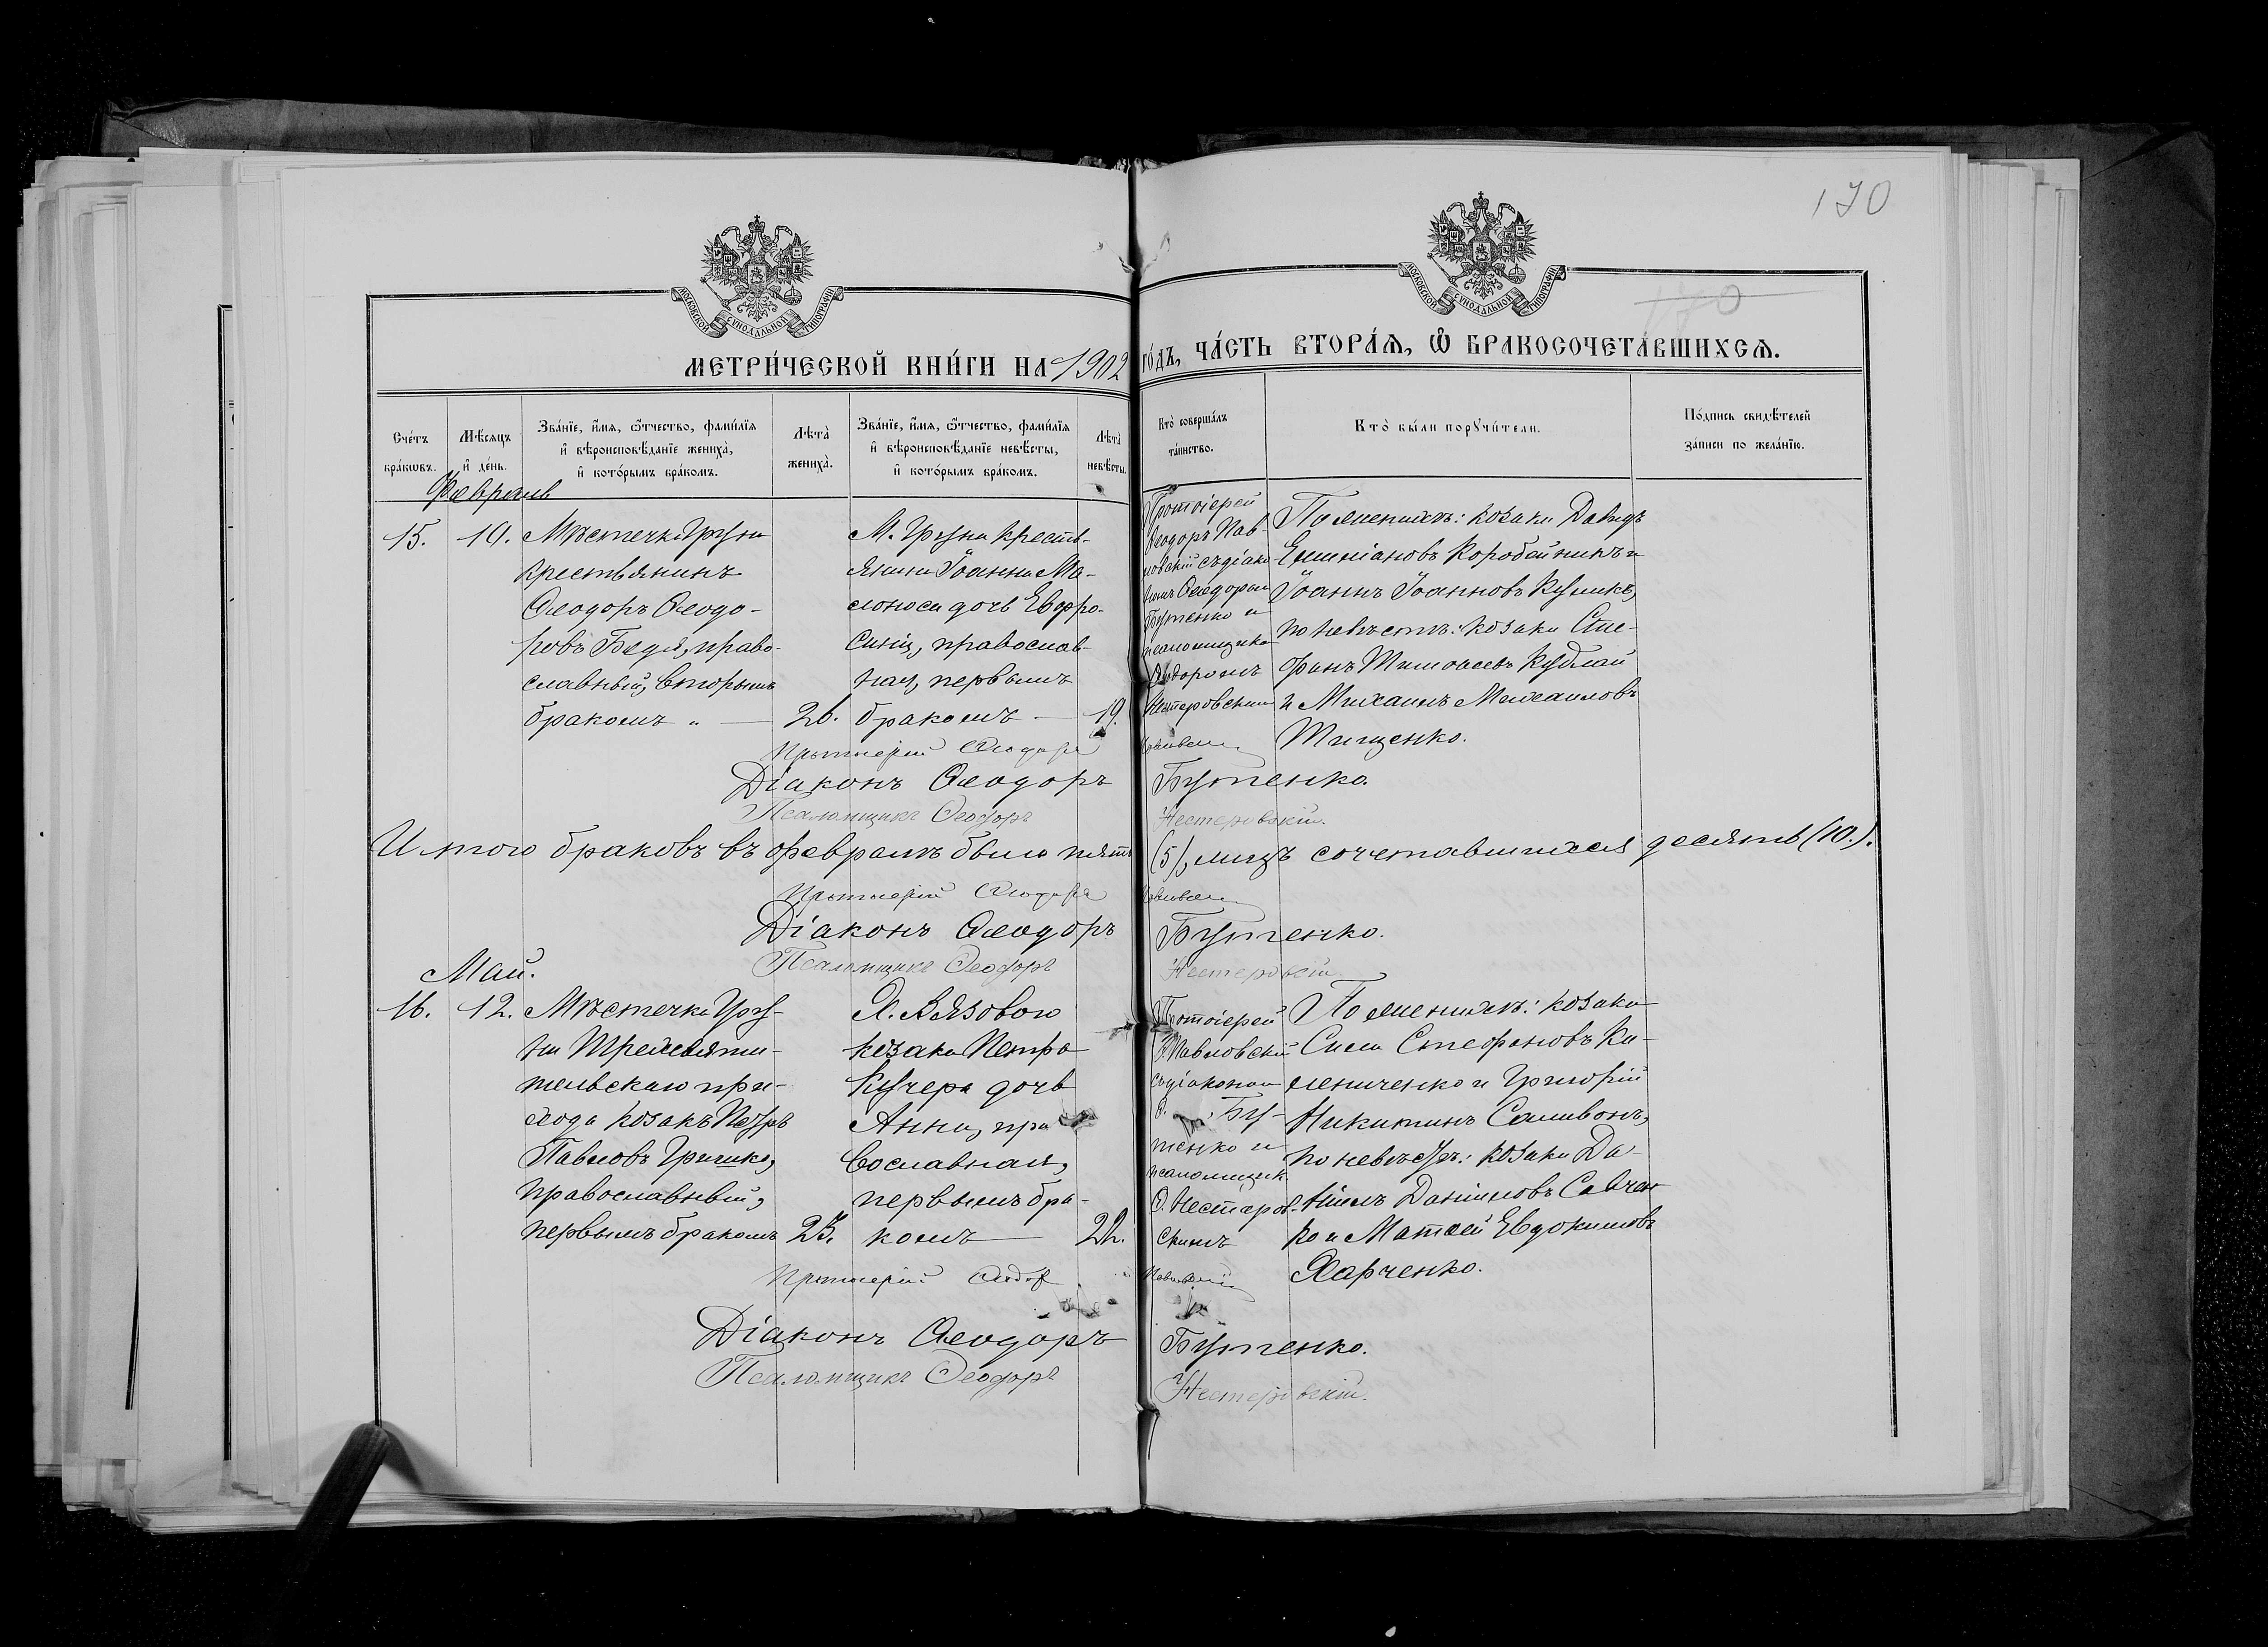 170
170
МОСКОВСКОЙ СѴНОДАЛЬНОЙ ТИПОГРАФІИ
МОСКОВСКОЙ СѴНОДАЛЬНОЙ ТИПОГРАФІИ
МЕТРИ́ЧЕСКОЙ КНИ́ГИ НА 1902 ГО́ДЪ, ЧА́СТЬ ВТОРА́Я, Ѡ БРАКОСОЧЕТА́ВШИХСЯ.
Сче́тъ бра́кѡвъ.
Мѣ́сяцъ и҆ де́нь.
Зва́нїе, и҆́мя, ѻ҆́тчество, фами́лїя и҆ вѣроисповѣ́данїе жениха̀, и҆ кото́рымъ бра́комъ.
Лѣта̀ жениха̀.
Зва́нїе, и҆́мя, ѻ҆́тчество, фами́лїя и҆ вѣроисповѣ́данїе невѣ́сты, и҆ кото́рымъ бра́комъ.
Лѣта̀ невѣ́сты.
Кто̀ соверша́лъ та́инство.
Кто̀ бы́ли порꙋчи́тели.
По́дпись свидѣ́телей за́писи по жела́нїю.
Февраль
15.
10.
Мѣстечка Груни
крестьянинъ
Ѳеодоръ Ѳеодо-
ровъ Бедя, право-
славный, вторымъ
бракомъ
26.
М. Груни крестья-
янина Іоанна Ма-
слоноса дочь Евфро-
синія, православ-
ная, первымъ
бракомъ
19.
Протоіерей
Ѳеодоръ Пав-
ловскій съ діако-
номъ Ѳеодоромъ
Бутенко и
псаломщикомъ
Ѳеодоромъ
Нестеровскимъ
По женихѣ: козаки Давидъ
Емиліановъ Коробейникъ и
Іоаннъ Іоанновъ Куликъ,
по невѣстѣ: козаки Сте-
фанъ Тимоѳеевъ Кублай
и Михаилъ Михаиловъ
Тищенко.
Протоіерей Ѳеодоръ Павловскій
Діаконъ Ѳеодоръ Бутенко.
Псаломщикъ Ѳеодоръ Нестеровскій.
Итого браковъ въ февралѣ было пять (5), лицъ сочетавшихся десять (10).
Протоіерей Ѳеодоръ Павловскій
Діаконъ Ѳеодоръ Бутенко.
Псаломщикъ Ѳеодоръ Нестеровскій
Май.
16.
12.
Мѣстечка Гру-
ни Трехсвяти-
тельскаго при-
хода козакъ Петръ
Павловъ Гришко,
православный,
первымъ бракомъ
23.
Х. Вязоваго
козака Петра
Кучера дочь
Анна, пра
вославная,
первымъ бра-
комъ
22.
Протоіерей
Ѳ. Павловскій
съ діакономъ
Ѳ. Бу-
тенко и
псаломщик.
Ѳ. Нестеров-
скимъ
По женихѣ: козаки
Сила Стефановъ Ки-
леиченко и Григорій
Никитинъ Саливонъ,
по невѣстѣ: козаки Да-
ніилъ Даніиловъ Савчен
ко и Матѳей Евдокимовъ
Харченко.
Протоіерей Ѳеодоръ Павловскій
Діаконъ Ѳеодоръ Бутенко.
Псаломщикъ Ѳеодоръ Нестеровскій.